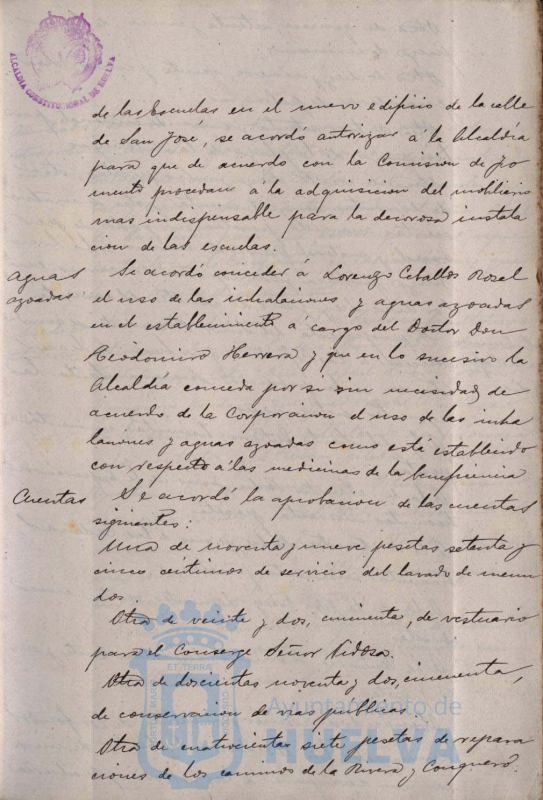 ALCALDIA CONSTITUCIONAL DE HUELVA
de las Escuelas en el nuevo edificio de la calle
de San José, se acordó autorizar á la Alcaldía
para que de acuerdo con la Comision de Fo
mento procedan á la adquisicion del mobiliario
mas indispensable para la decorosa instala
cion de las escuelas.
Aguas
azoadas
Se acordó conceder á Lorenzo Ceballos Rosel
el uso de las inhalaciones y aguas azoadas
en el establecimiento á cargo del Doctor Don
Teodomiro Herrera y que en lo sucesivo la
Alcaldía conceda por si sin necesidad de
acuerdo de la Corporacion el uso de las inha
laciones y aguas azoadas como está establecido
con respecto á las medicinas de la beneficencia
Cuentas
Se acordó la aprobacion de las cuentas
siguientes:
Una de noventa y nueve pesetas setenta y
cinco centimos de servicio del lavado de menu
dos.
Otra de veinte y dos, cincuenta, de vestuario
para el Conserge Señor
Otra de doscientas noventa y dos, cincuenta,
de conservacion de vias publicas.
Otra de cuatrocientas siete pesetas de repara
ciones de los caminos de la Rivera y Conquero.
ET TERRA
Ayuntamiento de
HUELVA